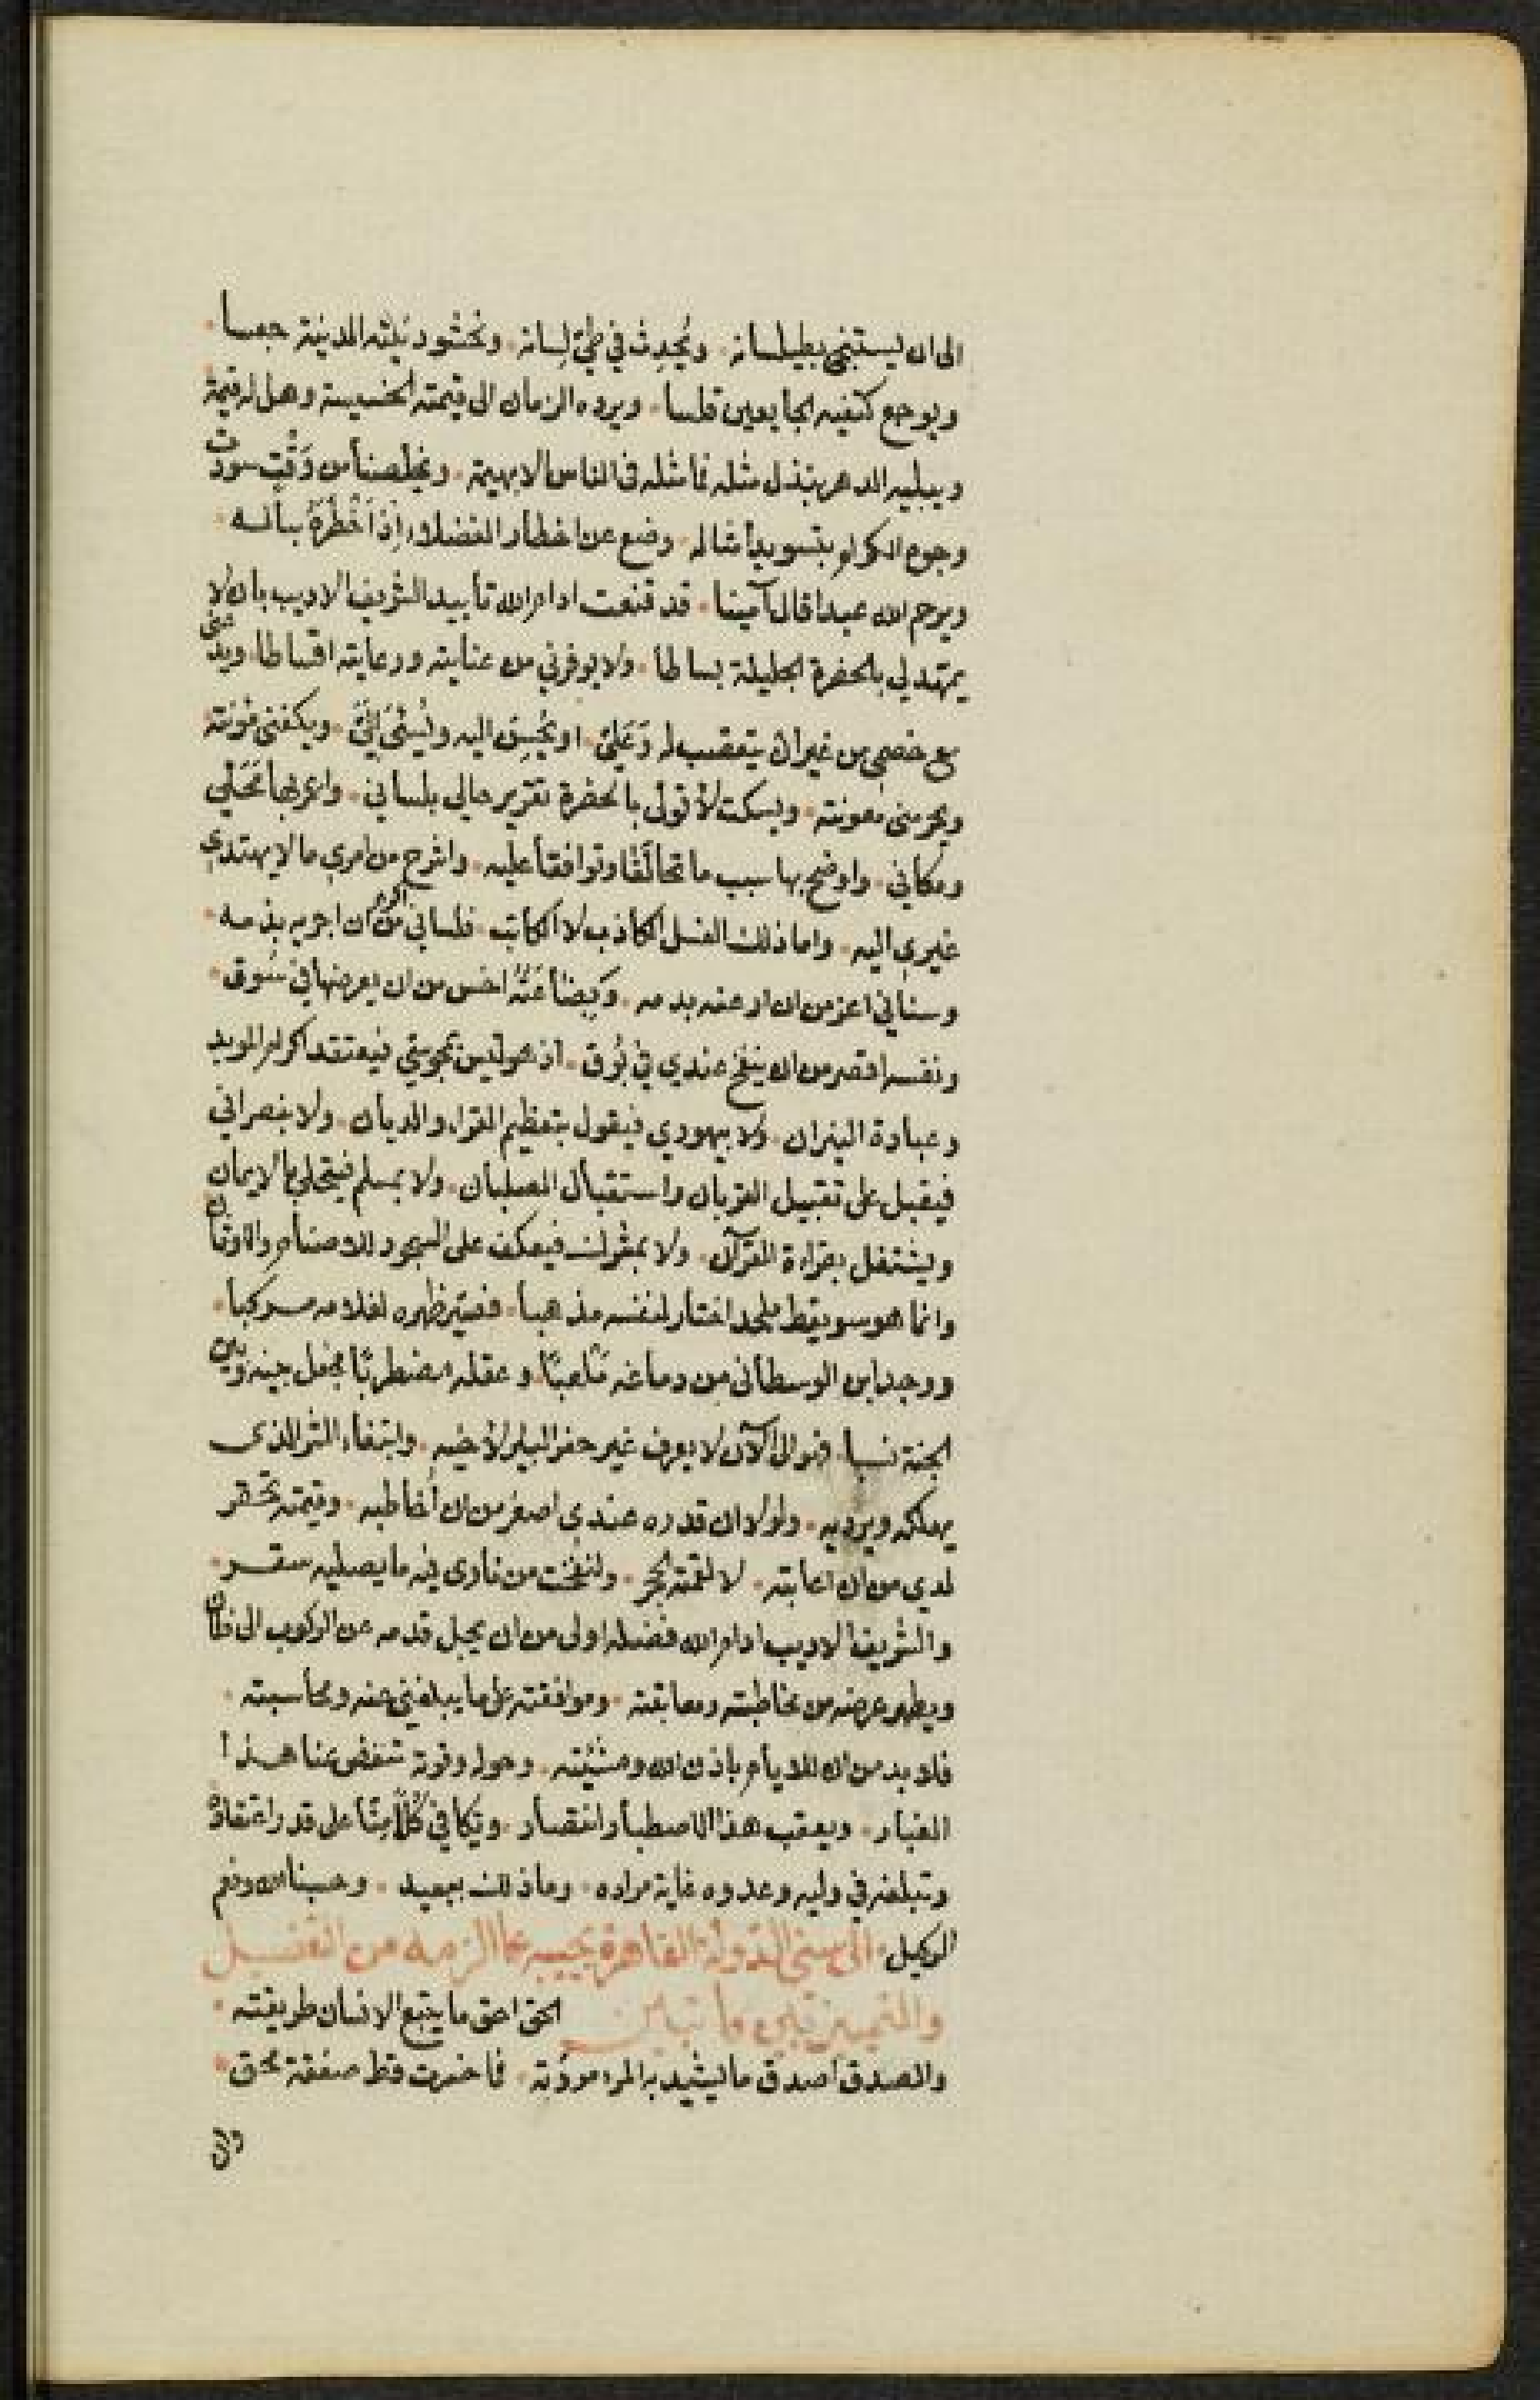 الى ان يستبنى بطيلسانه ويحدث في طي لسانه ونحشو دنيّته المدنية جعسا
ويوجع كتفيه الجا بعين قلسا ويرده الزمان الى قيمته الخسيسة وهل له قيمة
ويبليه الدهر بنذل مثله فما مثله في الناس الا بهيمة ويخلصنا من وقت سودت
وجوه الكرام بتسويد أمثاله وضع عن اخطار الفضلاء إذ أخطره بباله
ويرحم الله عبدا قال آمينا قد قنعت ادام الله تأييد الشريف الاديب بأن لا
يمهد لي بالحضرة الجليلة بساطا ولا يوفرني من عنايته ورعايته اقساطا ويدعني
مع خصمي من غير ان يتعصب له وعليّ او يحسن اليه ويسيء إليّ ويكفيني مؤنته
ويحرمني معونته ويسكت لأتولى بالحضرة تقرير حالي بلساني واعرفها محلي
ومكاني واوضح بها سبب ما تحالفا وتوافقا عليه واشرح من امري ما لا يهتدي
غيري اليه واما ذلك الفسل الكاذب لا الكاتب فلساني اكرم من ان اجريه بذمه
وسناني اعز من ان ارعفه بدمه وبضاعته اخس من ان يعرضها في سوق
ونفسه اقصر من ان ينفخ عندي في بوق اذ هو ليس بمجوسي فيعتقد اكرام الموبد
وعبادة النيران ولا بيهودي فيقول بتعظيم القراء والديان ولا بنصراني
فيقبل على تقبيل القربان واستقبال الصلبان ولا بمسلم فيتحلى بالايمان
ويشتغل بقراءة القرآن ولا بمشرك فيعكف على السجود للاصنام والاوثان
وانما هو سويقط ملحد اختار لنفسه مذهبا فصير ظهره لغلامه مركبا
ووجد ابن الوسطاني من دماغه ملعبا وعقله مضطربا فجعل بينه وبين
الجنة نسبا فهو الى الآن لا يعرف غير حفر البئر لأخيه وابتغاء الشر الذي
يهلكه ويرديه ولولا ان قدره عندي اصغر من ان أخاطبه وقيمته تحقر
لدي من ان اعاتبه لالقمته الحجر ولنفخت من ناري فيه ما يصليه سقر
والشريف الاديب ادام الله فضله اولى من ان يجل قدمه عن الركوب الى خان
ويطهر عرضه من مخاطبته ومعاتبته وموافقته على ما يبلغني عنه ومحاسبته
فلا بد من ان للايام باذن الله ومشيئته وحوله وقوته تنفض عنا هذا
الغبار ويعقب هذا الاصطبار انتصار ويكافي كلا منا على قدر اعتقاده
وتبلغه في وليه وعدوه غاية مراده وما ذلك ببعيد وحسبنا الله ونعم
الوكيل الى سني الدولة القاهرة يجيبه عما الزمه من التفسيل
والتمييز بين ما تباين الحق احق ما يتبع الانسان طريقته
والصدق اصدق ما يشيد به المرء مروءته فما خسرت قط صفقة محق
وان